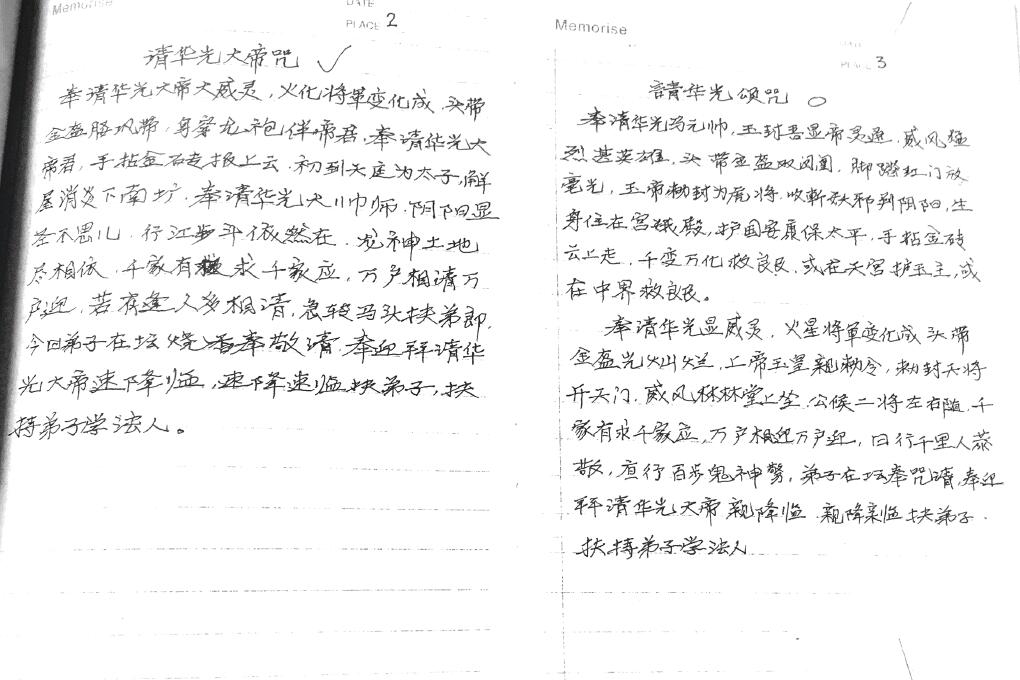 Memorise
DATE
PLACE 2
请华光大帝咒 ✓
奉请华光大帝大威灵，火化将軍变化成，头带
金盔胳巩带，身穿龙袍伴帝君，奉请华光大
帝君，手拈金石专报上云，初到天庭为太子，解
屋消炎下南圹，奉请华光大帅师，阴阳显
圣不思儿，行江步斗依然在，龙神土地
尽相依，千家有求千家应，万户相请万
户迎，若有逢人多相请，急转马头扶弟即，
今回弟子在坛烧香奉敬请，奉迎拜请华
光大帝速下降临，速下降速临扶弟子，扶
持弟子学法人。
Memorise
PLACE 3
請华光颂咒 ○
奉清华光马元帅，玉封吾显帝灵通，威风猛
烈甚英雄，头带金盔双闪闪，脚踏红门放
毫光，玉帝勅封为将，收斬妖邪判阴阳，生
身住在宫娥殿，护国安康保太平，手拈金砖
云上走，千变万化救良民，或在天宫护玉主，或
在中界救良民。
奉请华光显威灵，火星将軍变化成，头带
金盔光灿烂，上帝玉皇親勅令，勅封天将
开天门，威风林林堂上坐，公候二将左右随，千
家有求千家应，万户相迎万户迎，日行千里人恭
敬，夜行百步鬼神驚，弟子在坛奉咒請，奉迎
拜请华光大帝親降临，親降来临扶弟子，
扶持弟子学法人